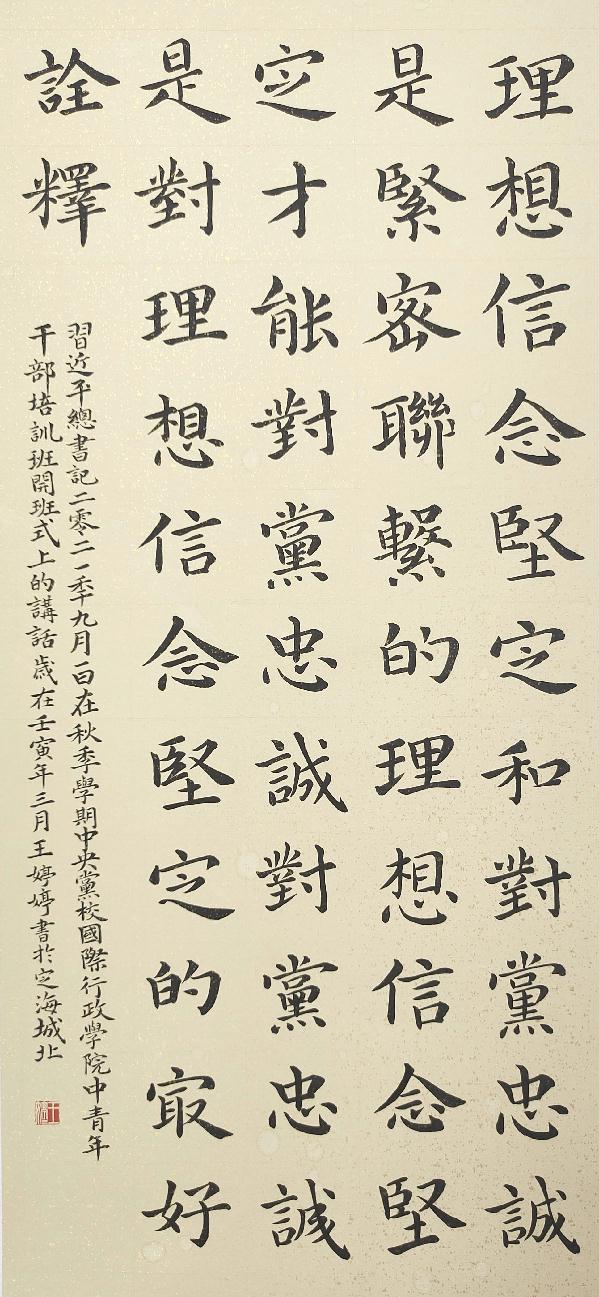 理想信念堅定和對黨忠誠
是緊密聯繫的理想信念堅
定才能對黨忠誠對黨忠誠
是對理想信念堅定的㝡好
詮釋
習近平總書記二零二一秊九月一日在秋季學期中央黨校國際行政學院中青年
干部培訓班開班式上的講話歲在壬寅年三月王婷婷書於定海城北